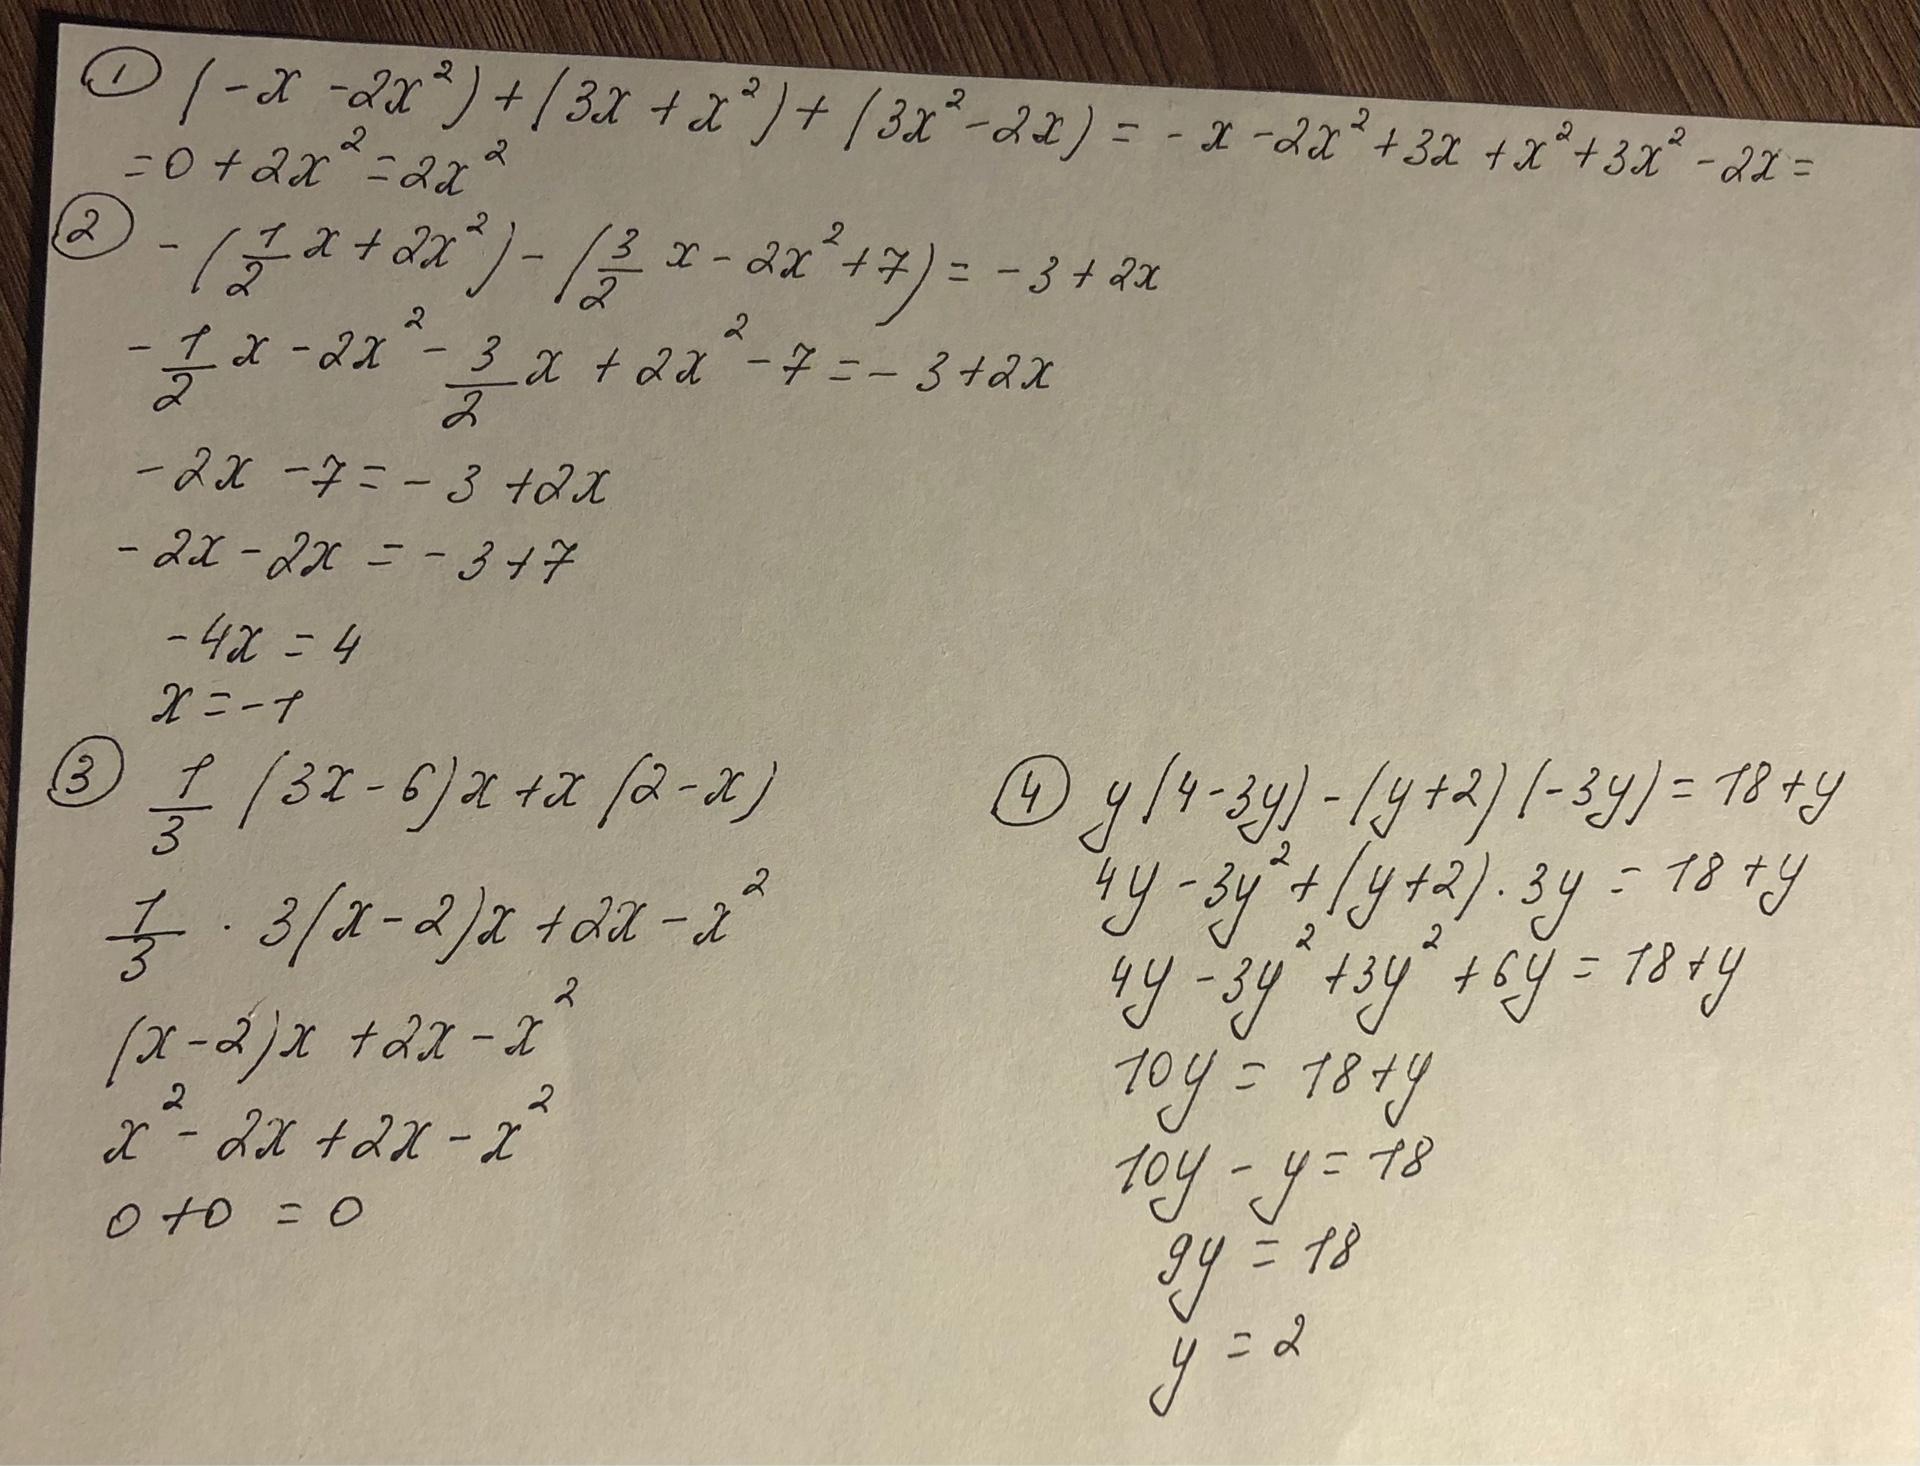 ① (-x -2x²)+(3x+x²)+(3x²-2x)= -x-2x²+3x+x²+3x²-2x=
=0+2x²=2x²
② -(1/2 x+2x²)-(3/2 x-2x²+7)=-3+2x
-1/2 x-2x²-3/2 x+2x²-7=-3+2x
-2x-7=-3+2x
-2x-2x=-3+7
-4x=4
x=-1
③ 1/3 (3x-6)x+x(2-x)
1/3 · 3(x-2)x+2x-x²
(x-2)x+2x-x²
x²-2x+2x-x²
0+0=0
④ y(4-3y)-(y+2)(-3y)=18+y
4y-3y²+(y+2)·3y=18+y
4y-3y²+3y²+6y=18+y
10y=18+y
10y-y=18
9y=18
y=2